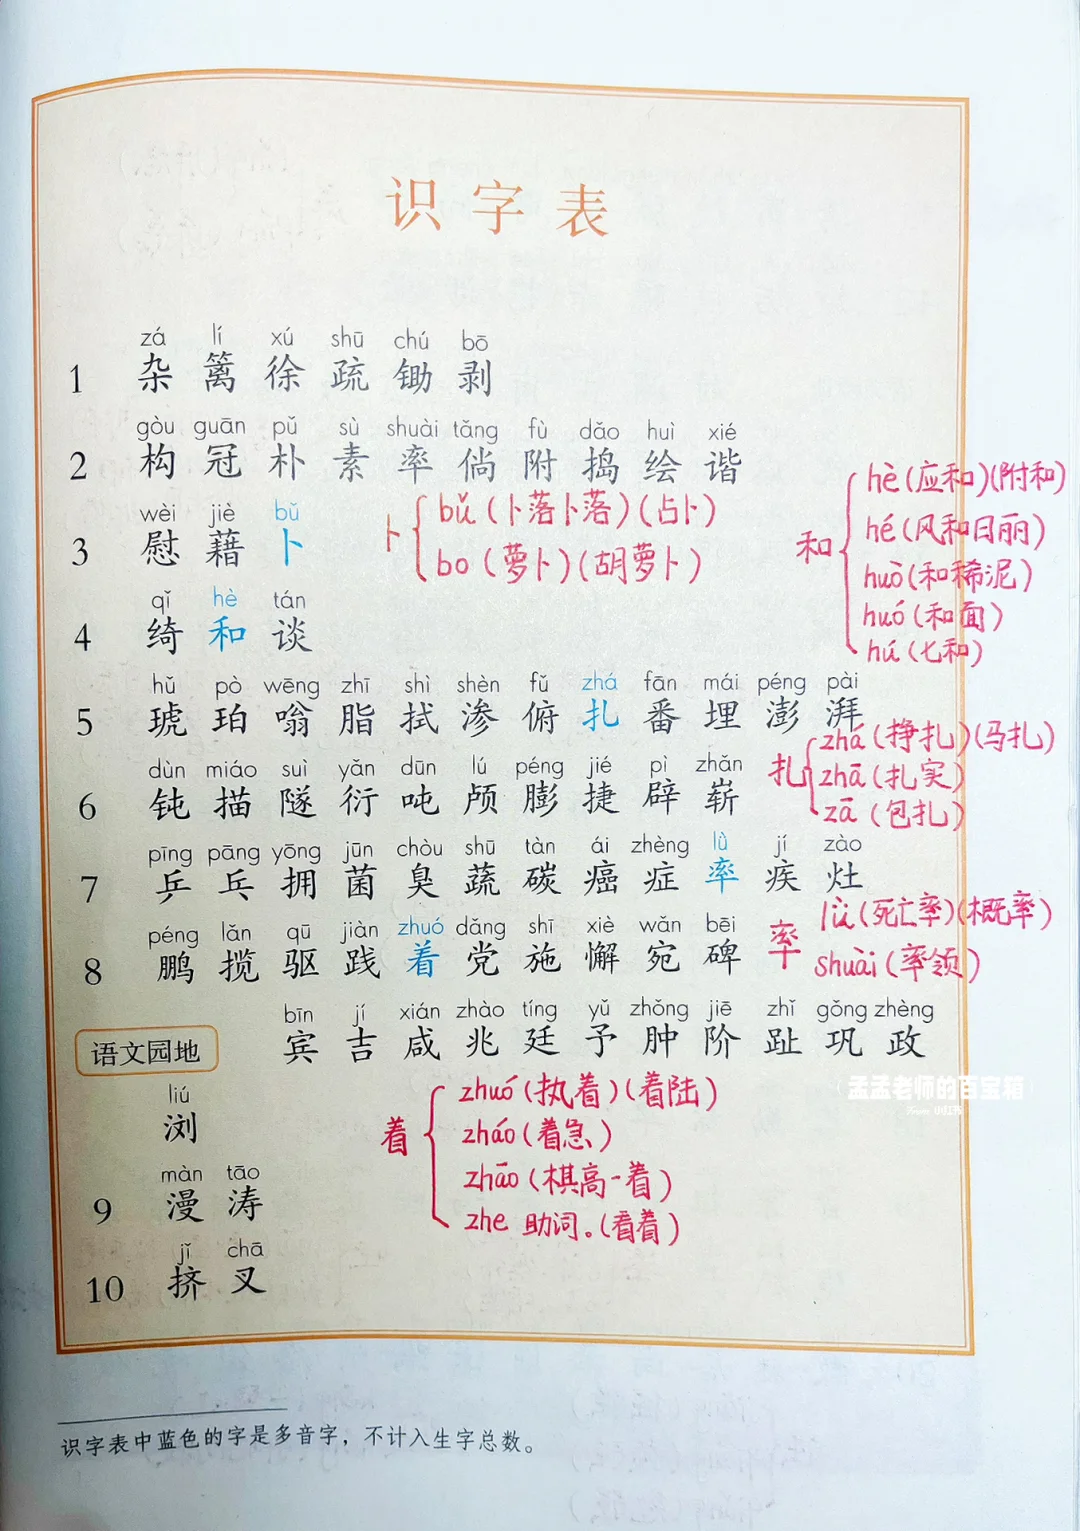 识字表
zá lí xú shū chú bō
1 杂 篱 徐 疏 锄 剥
gòu guān pǔ sù shuài tǎng fù dǎo huì xié
2 构 冠 朴 素 率 倘 附 捣 绘 谐
wèi jiè bǔ
3 慰 藉 卜
卜 bǔ (卜落卜落)(占卜)
bo (萝卜)(胡萝卜)
和 hè (应和)(附和)
hé (风和日丽)
huò (和稀泥)
huó (和面)
hú (七和)
qǐ hè tán
4 绮 和 谈
hǔ pò wēng zhī shì shèn fǔ zhá fān mái péng pài
5 琥 珀 嗡 脂 拭 渗 俯 扎 番 埋 澎 湃
扎 zhá (挣扎)(马扎)
zhā (扎实)
zā (包扎)
dùn miáo suì yǎn dūn lú péng jié pì zhǎn
6 钝 描 隧 衍 吨 颅 膨 捷 辟 崭
pīng pāng yōng jūn chòu shū tàn ái zhèng lǜ jí zào
7 乒 乓 拥 菌 臭 蔬 碳 癌 症 率 疾 灶
率 lǜ (死亡率)(概率)
shuài (率领)
péng lǎn qū jiàn zhuó dǎng shī xiè wǎn bēi
8 鹏 揽 驱 践 着 党 施 懈 宛 碑
bīn jí xián zhào tíng yǔ zhǒng jiē zhǐ gǒng zhèng
语文园地 宾 吉 咸 兆 廷 予 肿 阶 趾 巩 政
liú
浏
着 zhuó (执着)(着陆)
zháo (着急)
zhāo (棋高一着)
zhe 助词。(看着)
màn tāo
9 漫 涛
jǐ chā
10 挤 叉
孟孟老师的百宝箱
小红书
识字表中蓝色的字是多音字，不计入生字总数。